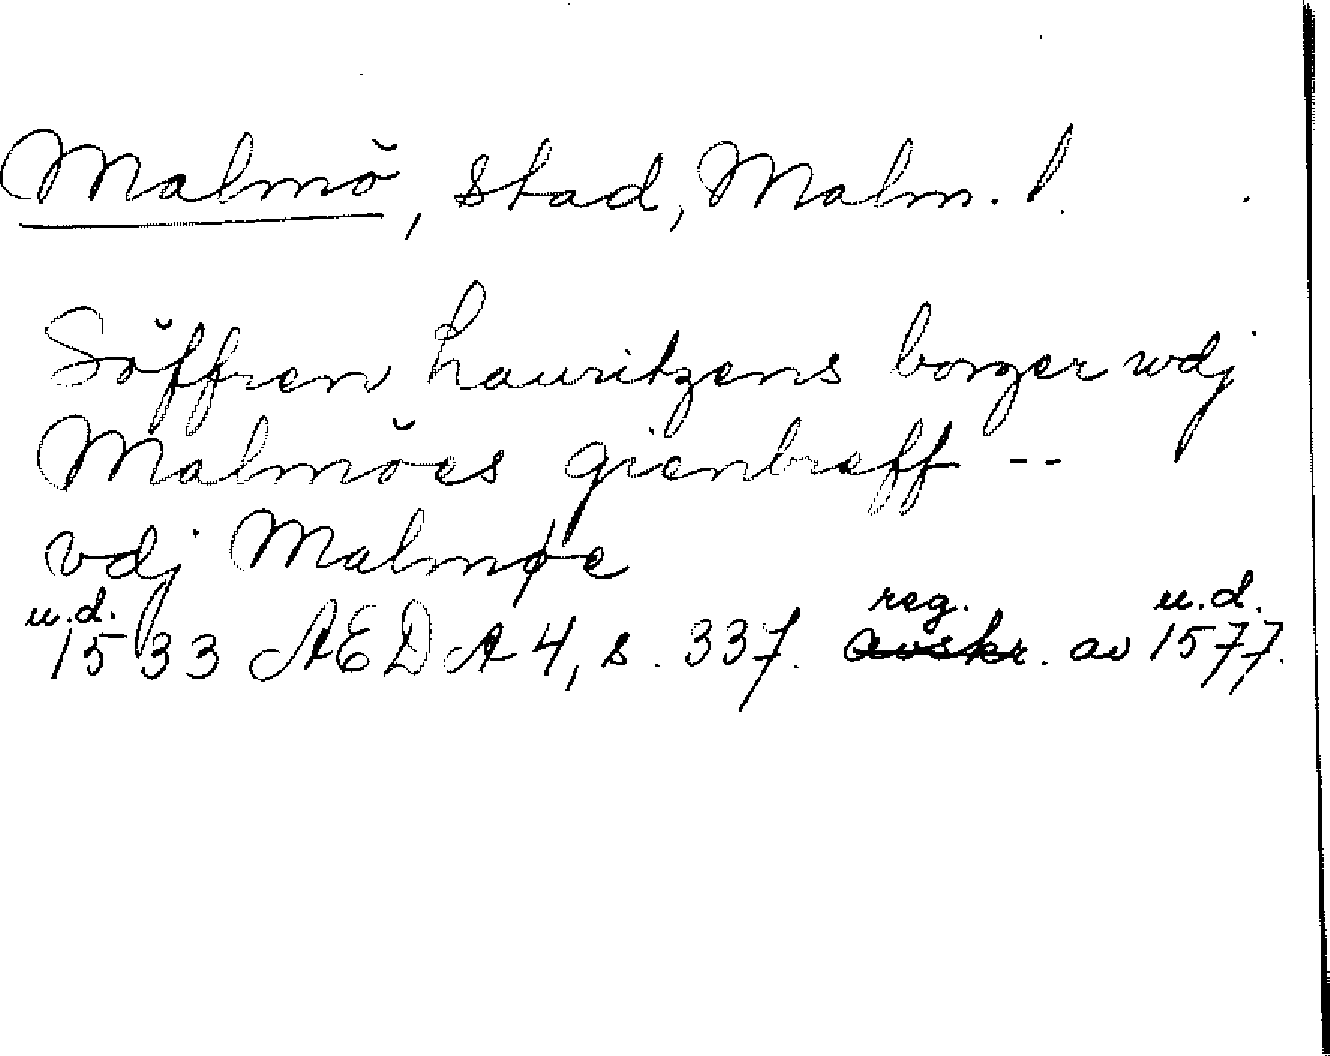 Malmö, stad, Malm. l.
Söffren Lauritzens borger wdj
Malmöes gienbreff --
vdj Malmøe
u.d. reg. u.d.
1533 AEDA 4, s. 337. avskr. av 1577.